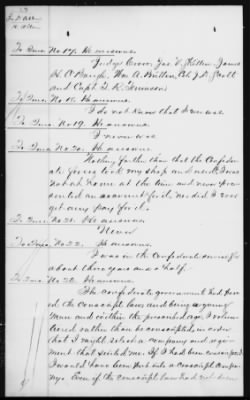 To Ques. No. 17. He answers
Judge Crow, Jas. V. Allen, James
H. O. Baugh, Wm. A. Britton, Col. J. R. Scott
and Capt. T. K.
To Ques. No. 18. He answers
I do not know that I ever was
To Ques. No. 19. He answers
I never was.
To Ques. No. 20. He answers
Nothing further than that the Confed-
erate forces took my shop and used. I was
not at home at the time and never pre-
sented an account for it, nor did I ever
get any pay for it.
To Ques. No. 21. He answers
Never
To Ques. No. 22. He answers
I was in the confederate service for
about three years and a half.
To Ques. No. 23. He answers
The confederate government had pass-
ed the conscript law, and being a young
man and within the prescribed age, I volun-
teered rather than be conscripted, in order
that I might select a company and regi-
ment that suited me. If I had been conscripted
I would have been put into a conscript compa-
ny. Even if the conscript law had not been